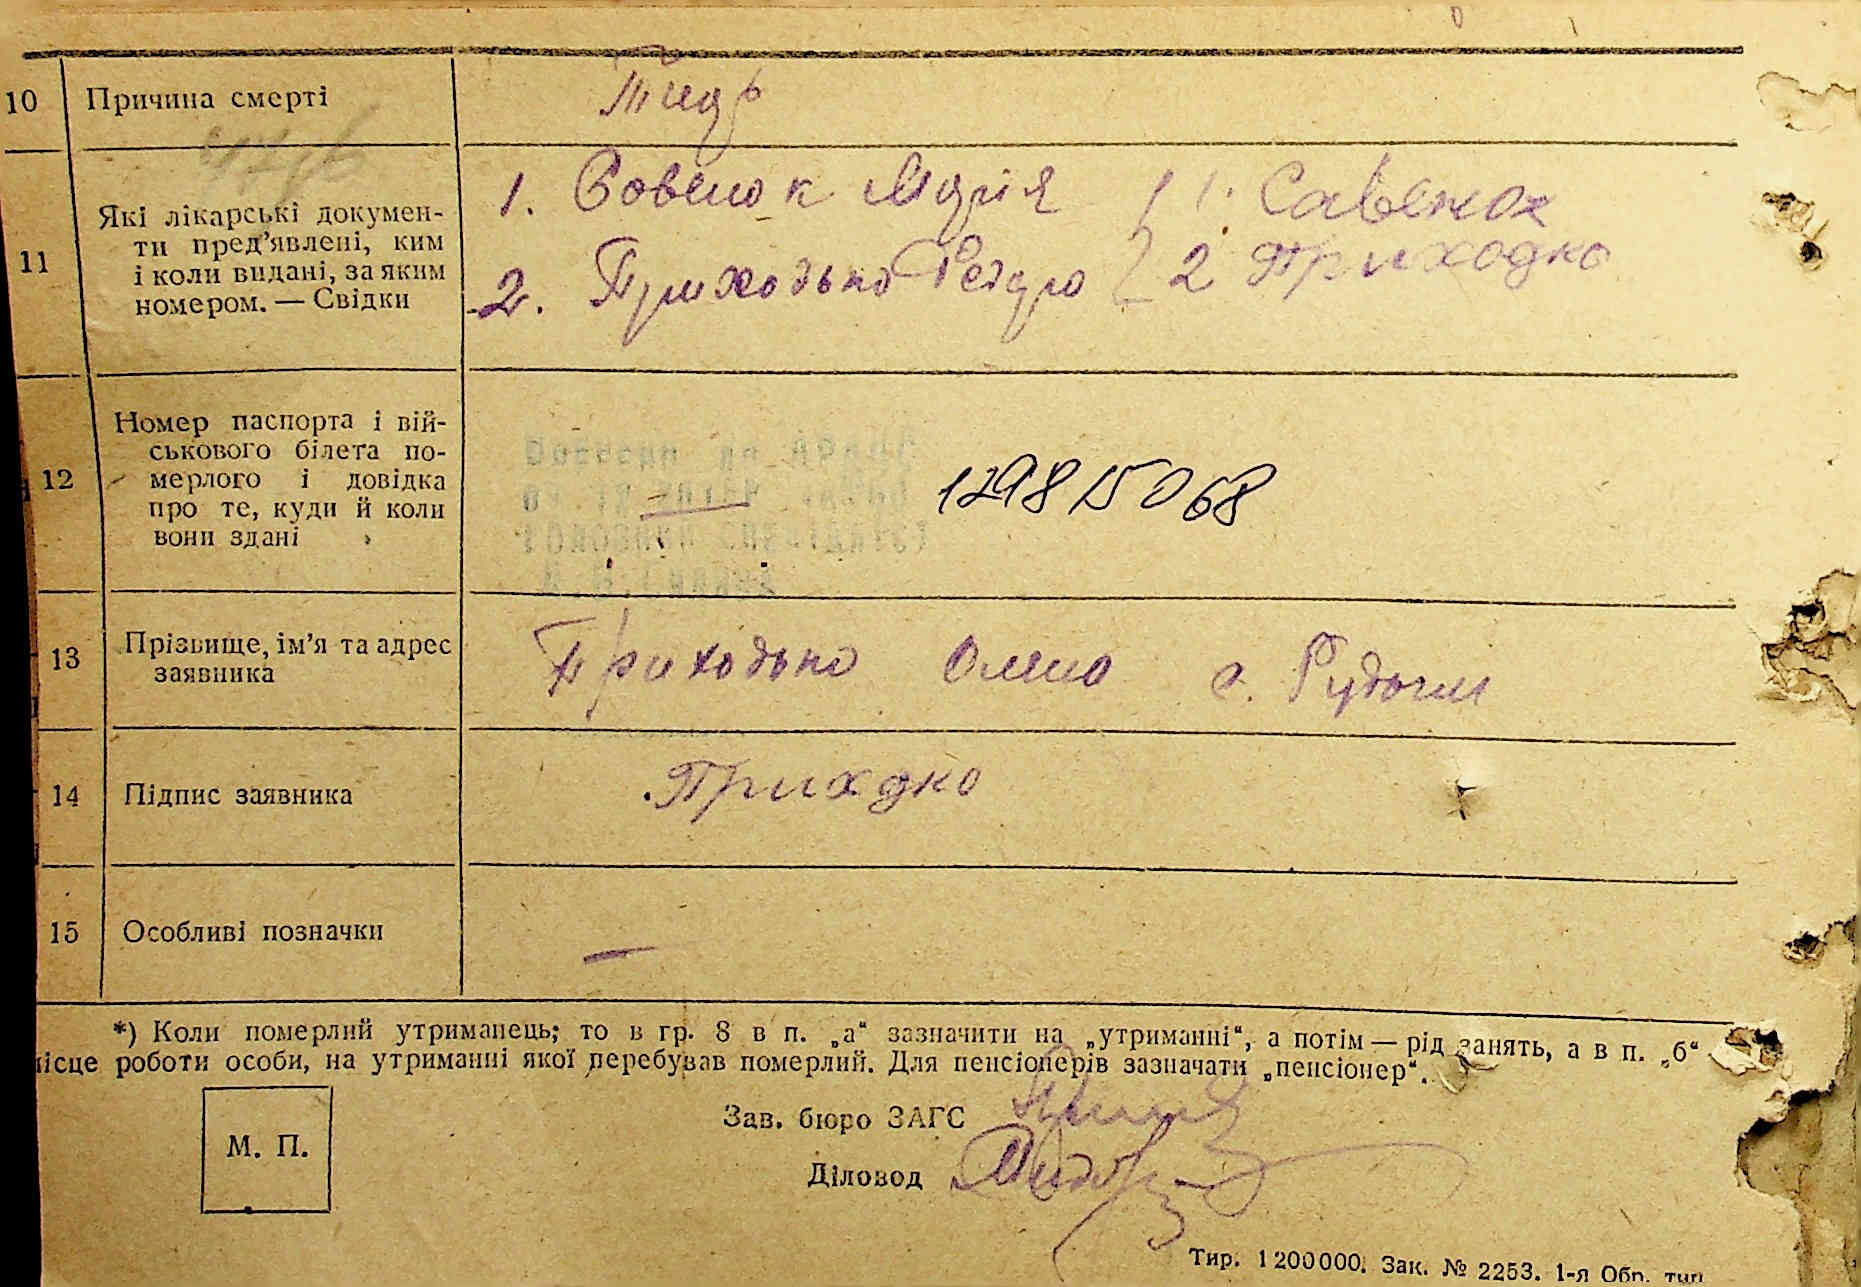 10 Причина смерті Тиф
11 Які лікарські докумен-
ти пред’явлені, ким
і коли видані, за яким
номером. — Свідки
1. Совенок Марія 1. Савенок
2. Приходько Федора 2 Приходко
12 Номер паспорта і вій-
ськового білета по-
мерлого і довідка
про те, куди й коли
вони здані
—
129815068
13 Прізвище, ім’я та адрес
заявника
Приходько с.
14 Підпис заявника Прихдко
15 Особливі позначки —
*) Коли померлий утриманець; то в гр. 8 в п. „а“ зазначити на „утриманні“, а потім — рід занять, а в п. „б“
місце роботи особи, на утриманні якої перебував померлий. Для пенсіонерів зазначати „пенсіонер“.
М. П.
Зав. бюро ЗАГС
Діловод
Тир. 1200000. Зак. № 2253. 1-я Обр. тип